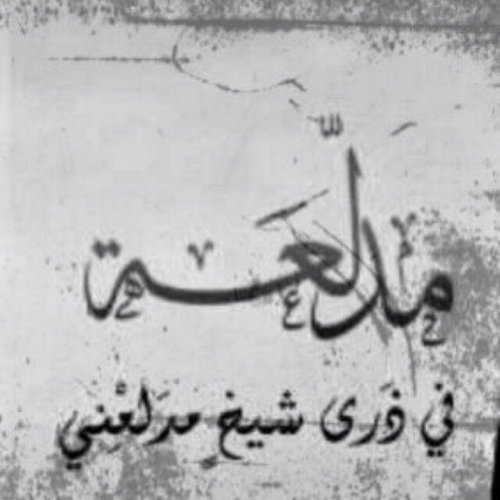 مدلّعة
في ذَرى شيخٍ مدَلعْني